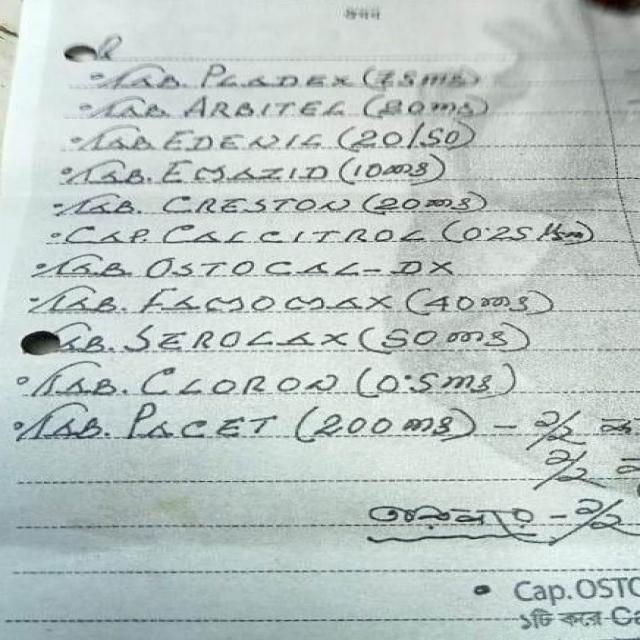 • Tab. PLADEX (75mg)
• Tab. ARBITEL (80mg)
• Tab EDENIL (20/50)
• Tab. EMAZID (10mg)
• Tab. CRESTON (20mg)
• CAP. CALCITROL (0.25
• Tab. OSTOCAL-DX
• Tab. FAMOMAX (40mg)
Tab. SEROLAX (50mg)
• Tab. CLORON (0.5mg)
• Tab. PACET (200mg) -
• Cap. OSTO
১টি করে